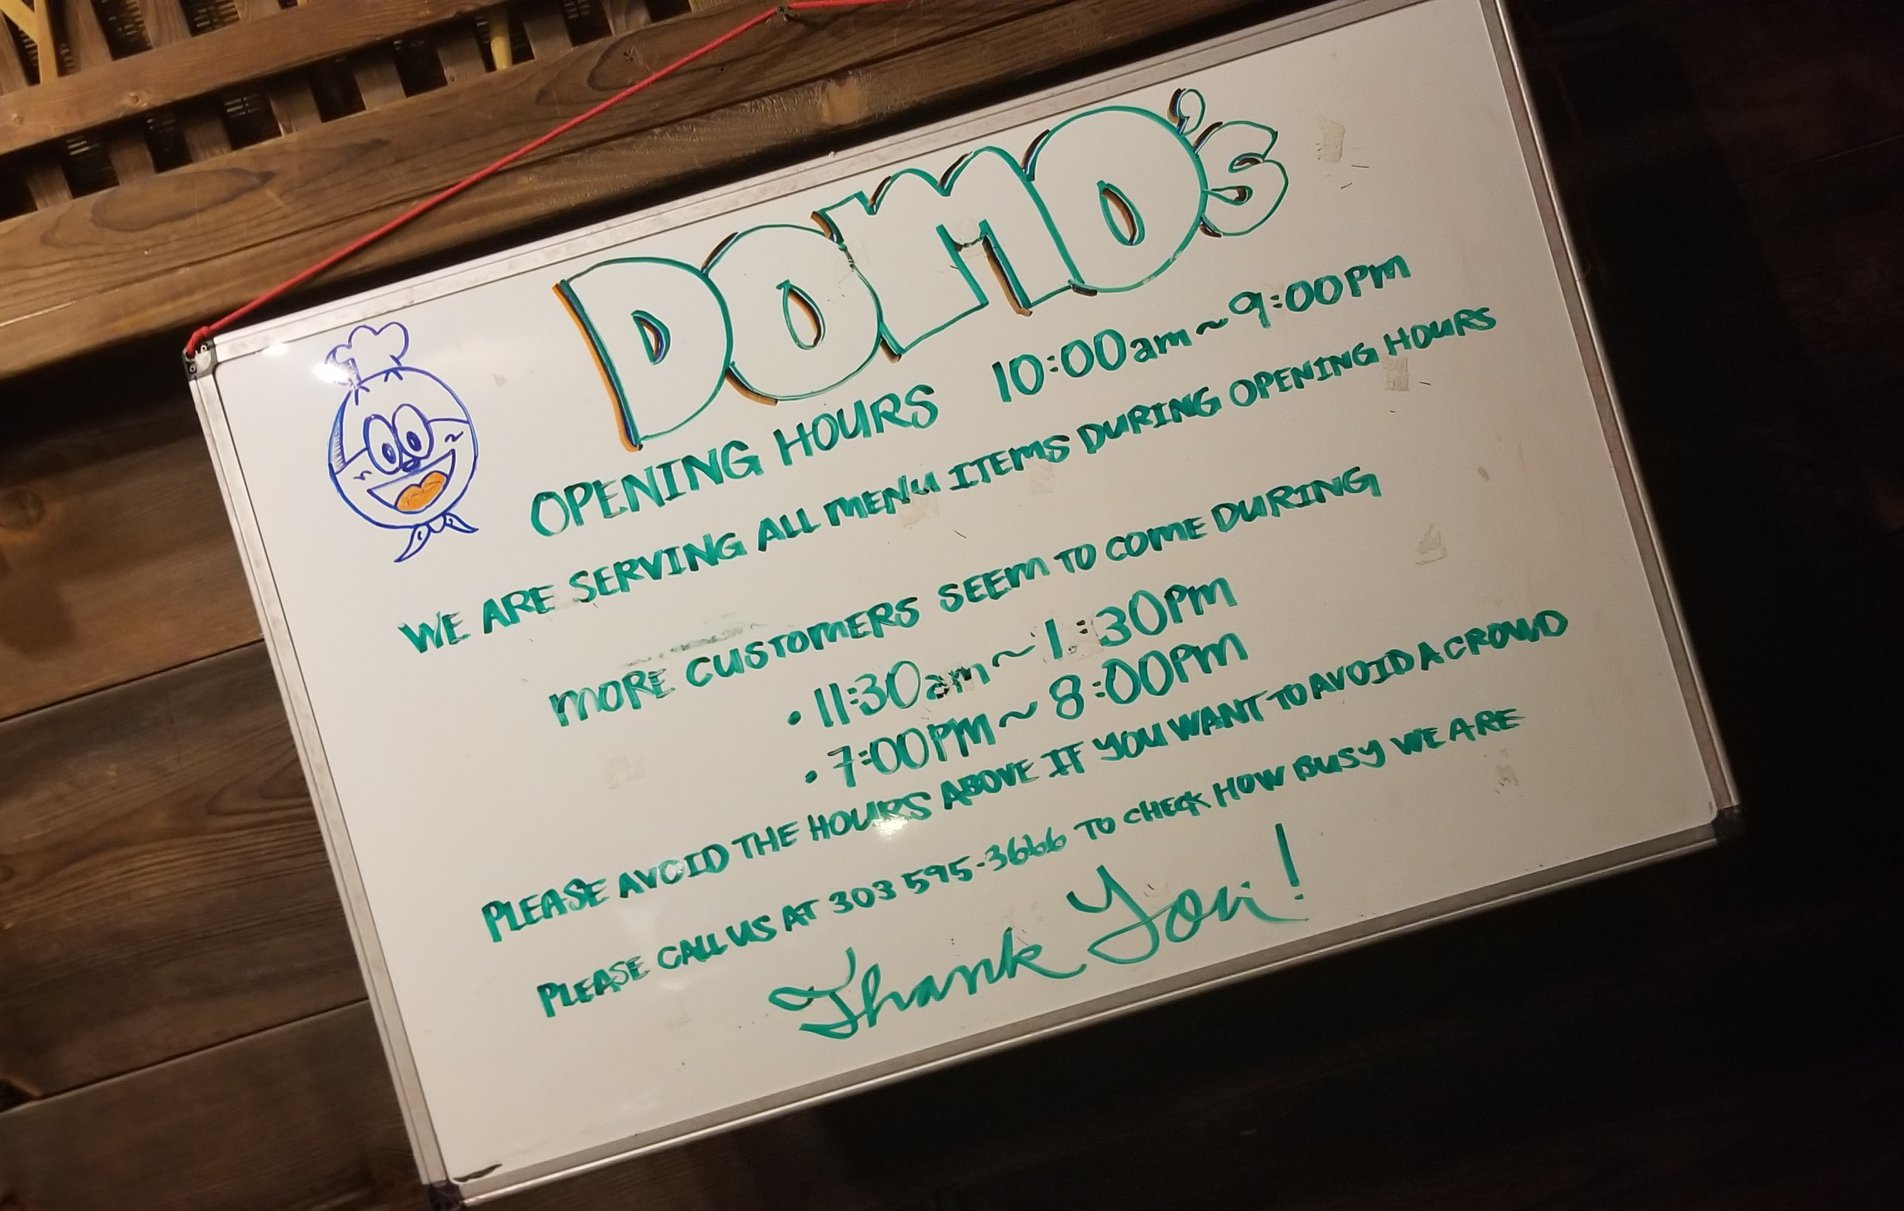 DOMO's
OPENING HOURS 10:00am~9:00PM
WE ARE SERVING ALL MENU ITEMS DURING OPENING HOURS
MORE CUSTOMERS SEEM TO COME DURING
• 11:30am~1:30PM
• 7:00PM~8:00PM
PLEASE AVOID THE HOURS ABOVE IF YOU WANT TO AVOID A CROWD
PLEASE CALL US AT 303 595-3666 TO CHECK HOW BUSY WE ARE
Thank You!